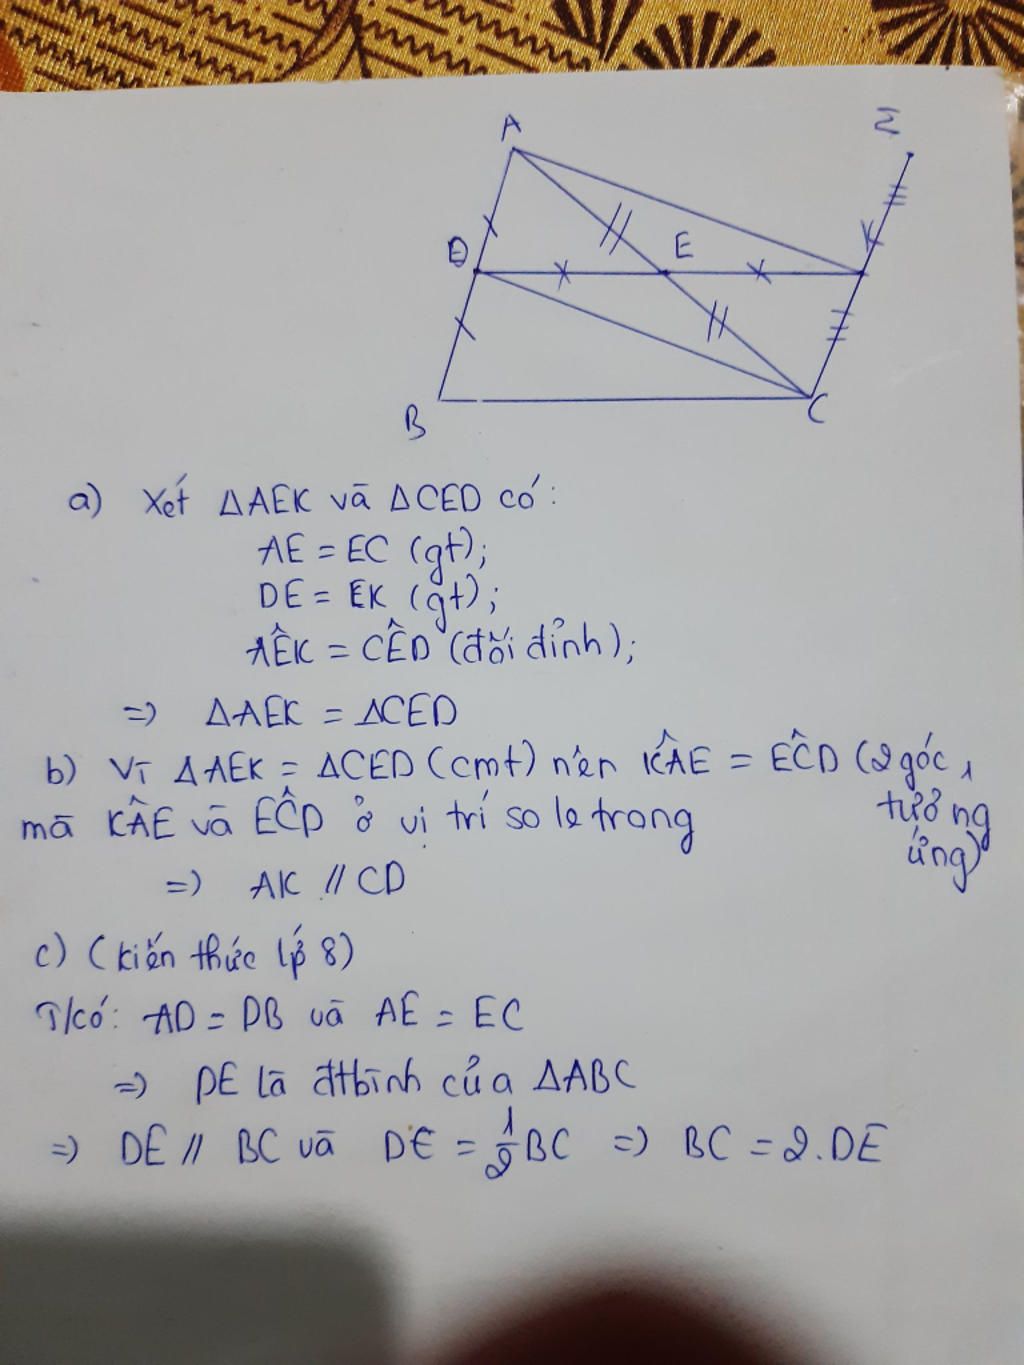 A
I
D
E
K
B
C
a) Xét ΔAEK và ΔCED có:
AE = EC (gt);
DE = EK (gt);
AÊK = CÊD (đối đỉnh);
=> ΔAEK = ΔCED
b) Vì ΔAEK = ΔCED (cmt) nên KÂE = EĈD (2 góc tương ứng),
mà KÂE và EĈD ở vị trí so le trong
=> AK // CD
c) (kiến thức lớp 8)
T/có: AD = DB và AE = EC
=> DE là đtbình của ΔABC
=> DE // BC và DE = 1/2 BC => BC = 2.DE